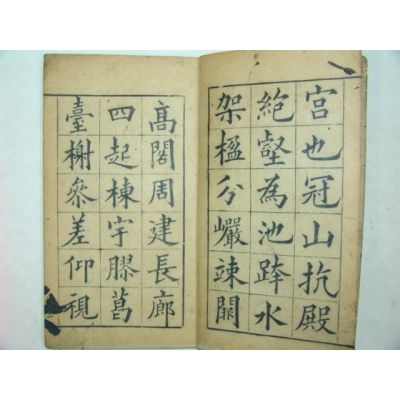 宮也冠山抗殿
絶壑為池跨水
架楹分巖竦闕
髙閣周建長廊
四起棟宇膠葛
臺榭參差仰視